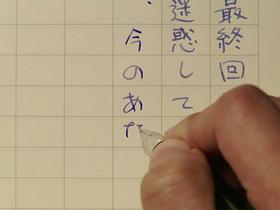 最終回
迷惑して
、今のあた